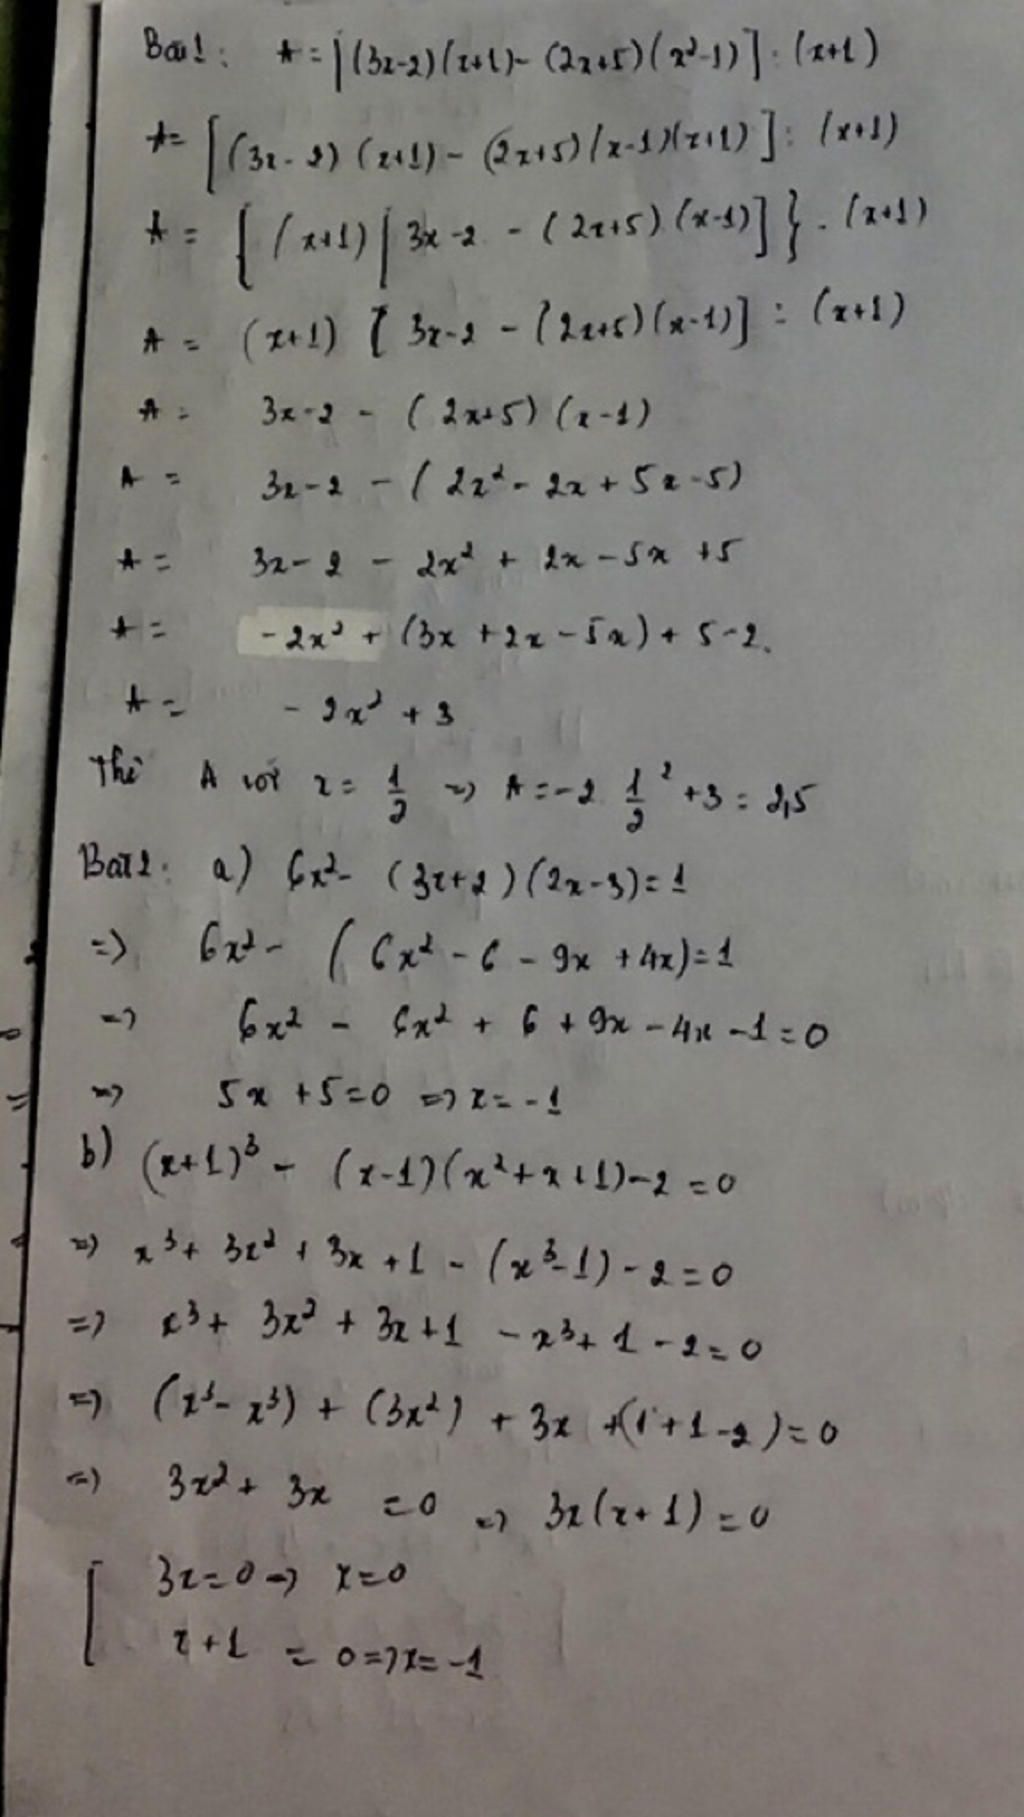 Bài 1: A = [(3x-2)(x+1) - (2x+5)(x²-1)] : (x+1)
A = [(3x-2)(x+1) - (2x+5)(x-1)(x+1)] : (x+1)
A = {(x+1)[3x-2 - (2x+5)(x-1)]} : (x+1)
A = (x+1) [3x-2 - (2x+5)(x-1)] : (x+1)
A = 3x-2 - (2x+5)(x-1)
A = 3x-2 - (2x² - 2x + 5x - 5)
A = 3x-2 - 2x² + 2x - 5x + 5
A = -2x² + (3x + 2x - 5x) + 5-2.
A = -2x² + 3
Thế A với x = 1/2 => A = -2 1/2² + 3 = 2,5
Bài 2: a) 6x² - (3x+2)(2x-3) = 1
=> 6x² - (6x² - 6 - 9x + 4x) = 1
=> 6x² - 6x² + 6 + 9x - 4x - 1 = 0
=> 5x + 5 = 0 => x = -1
b) (x+1)³ - (x-1)(x² + x + 1) - 2 = 0
=> x³ + 3x² + 3x + 1 - (x³-1) - 2 = 0
=> x³ + 3x² + 3x + 1 - x³ + 1 - 2 = 0
=> (x³ - x³) + (3x²) + 3x + (1 + 1 - 2) = 0
=> 3x² + 3x = 0 => 3x(x+1) = 0
[ 3x = 0 => x = 0
x + 1 = 0 => x = -1